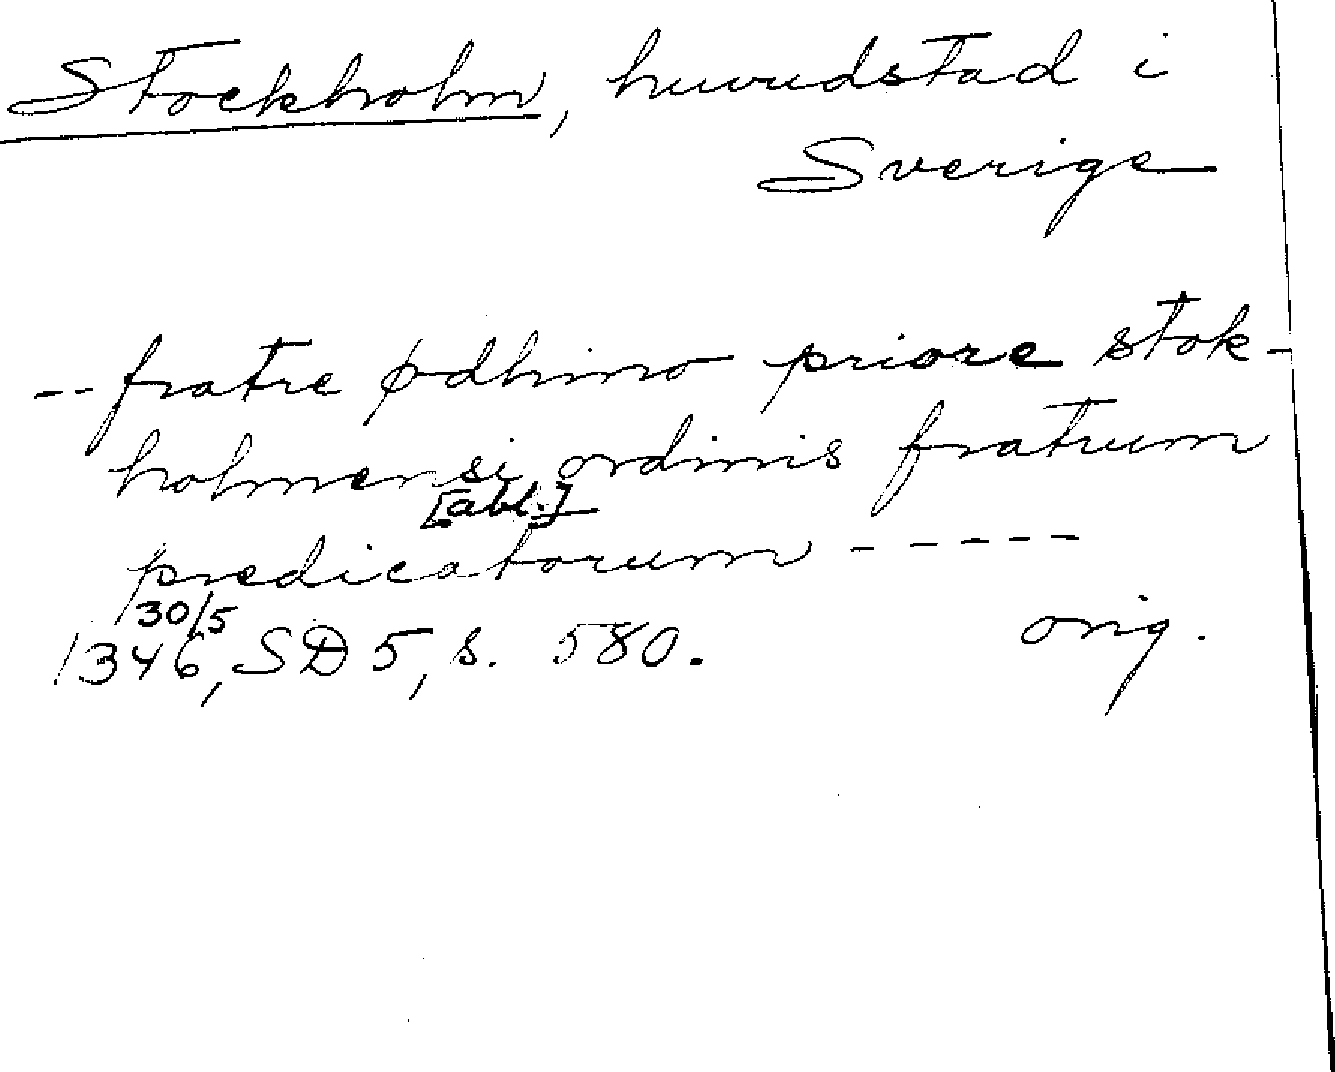 Stockholm, huvudstad i
Sverige
-- fratre ødhino priore stok-
holmensi ordinis fratrum
[abl.]
predicatorum -----
30/5
1346, SD 5, s. 580. orig.